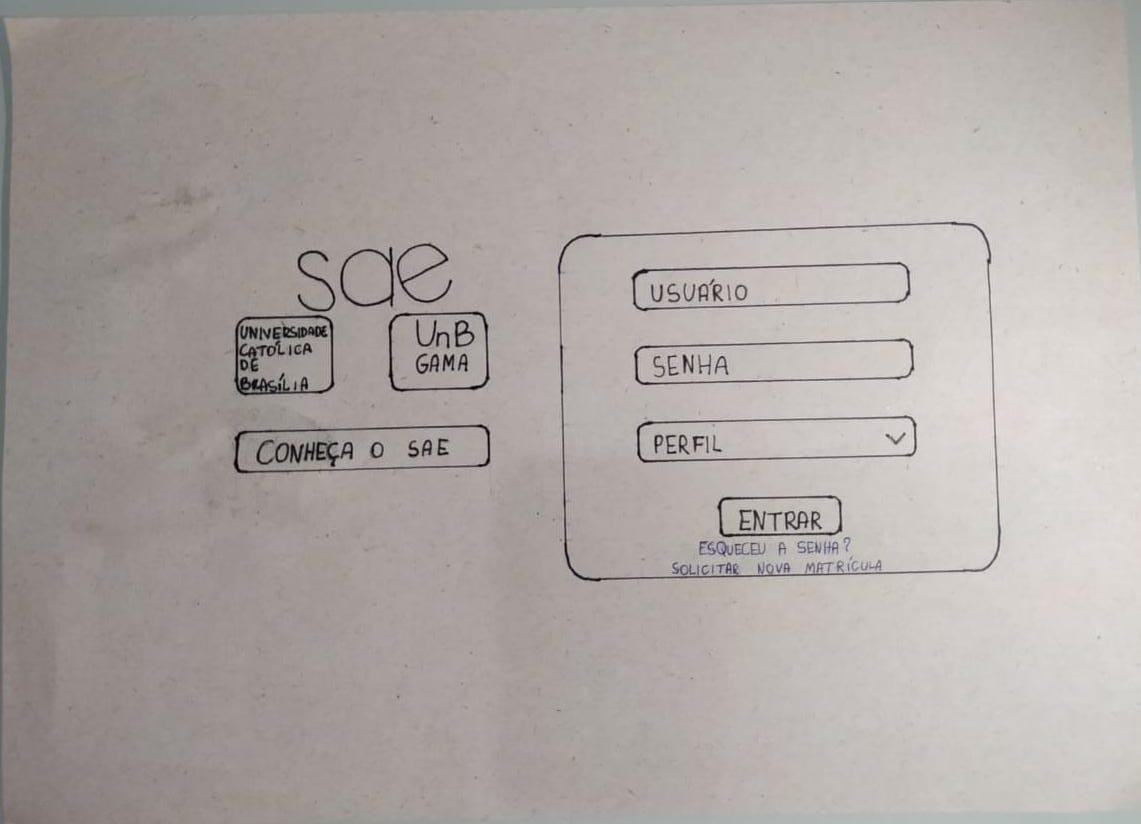 sae
UNIVERSIDADE
CATÓLICA
DE
BRASÍLIA
UnB
GAMA
CONHEÇA O SAE
USUÁRIO
SENHA
PERFIL
ENTRAR
ESQUECEU A SENHA?
SOLICITAR NOVA MATRÍCULA